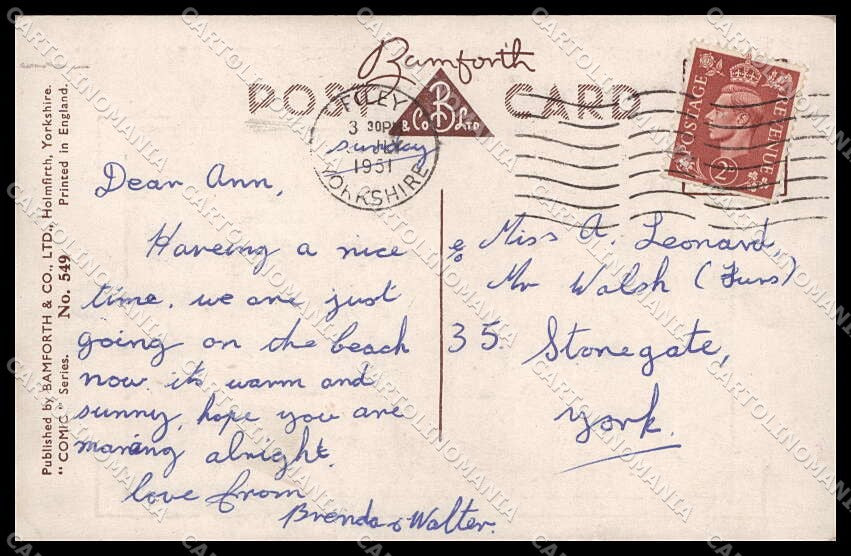 Bamforth
POST CARD
& Co B LTD
FILEY
3 30PM
JLY
1951
YORKSHIRE
POSTAGE REVENUE
2D
Published by BAMFORTH & CO., LTD., Holmfirth, Yorkshire.
"COMIC" Series. No. 549 Printed in England.
sunday
Dear Ann,
Haveing a nice
time. we are just
going on the beach
now. its warm and
sunny, hope you are
alright.
love from
Brenda & Walter.
c/o Miss A. Leonard,
Mr Walsh (Furs)
35. Stonegate,
York.
CARTOLINOMANIA